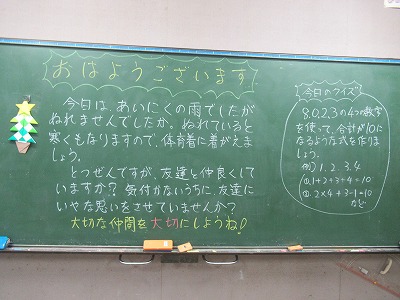 おはようございます
今日は、あいにくの雨でしたが
ぬれませんでしたか。ぬれていると
寒くもなりますので、体育着に着がえま
しょう。
とつぜんですが、友達と仲良くして
いますか？気付かないうちに、友達に
いやな思いをさせていませんか？
大切な仲間を大切にしようね！
今日のクイズ
8.0.2.3の4つの数字
を使って、合計が10に
なるような式を作りま
しょう。
例）1.2.3.4
①.1+2+3+4=10
②.2×4+3-1=10
など